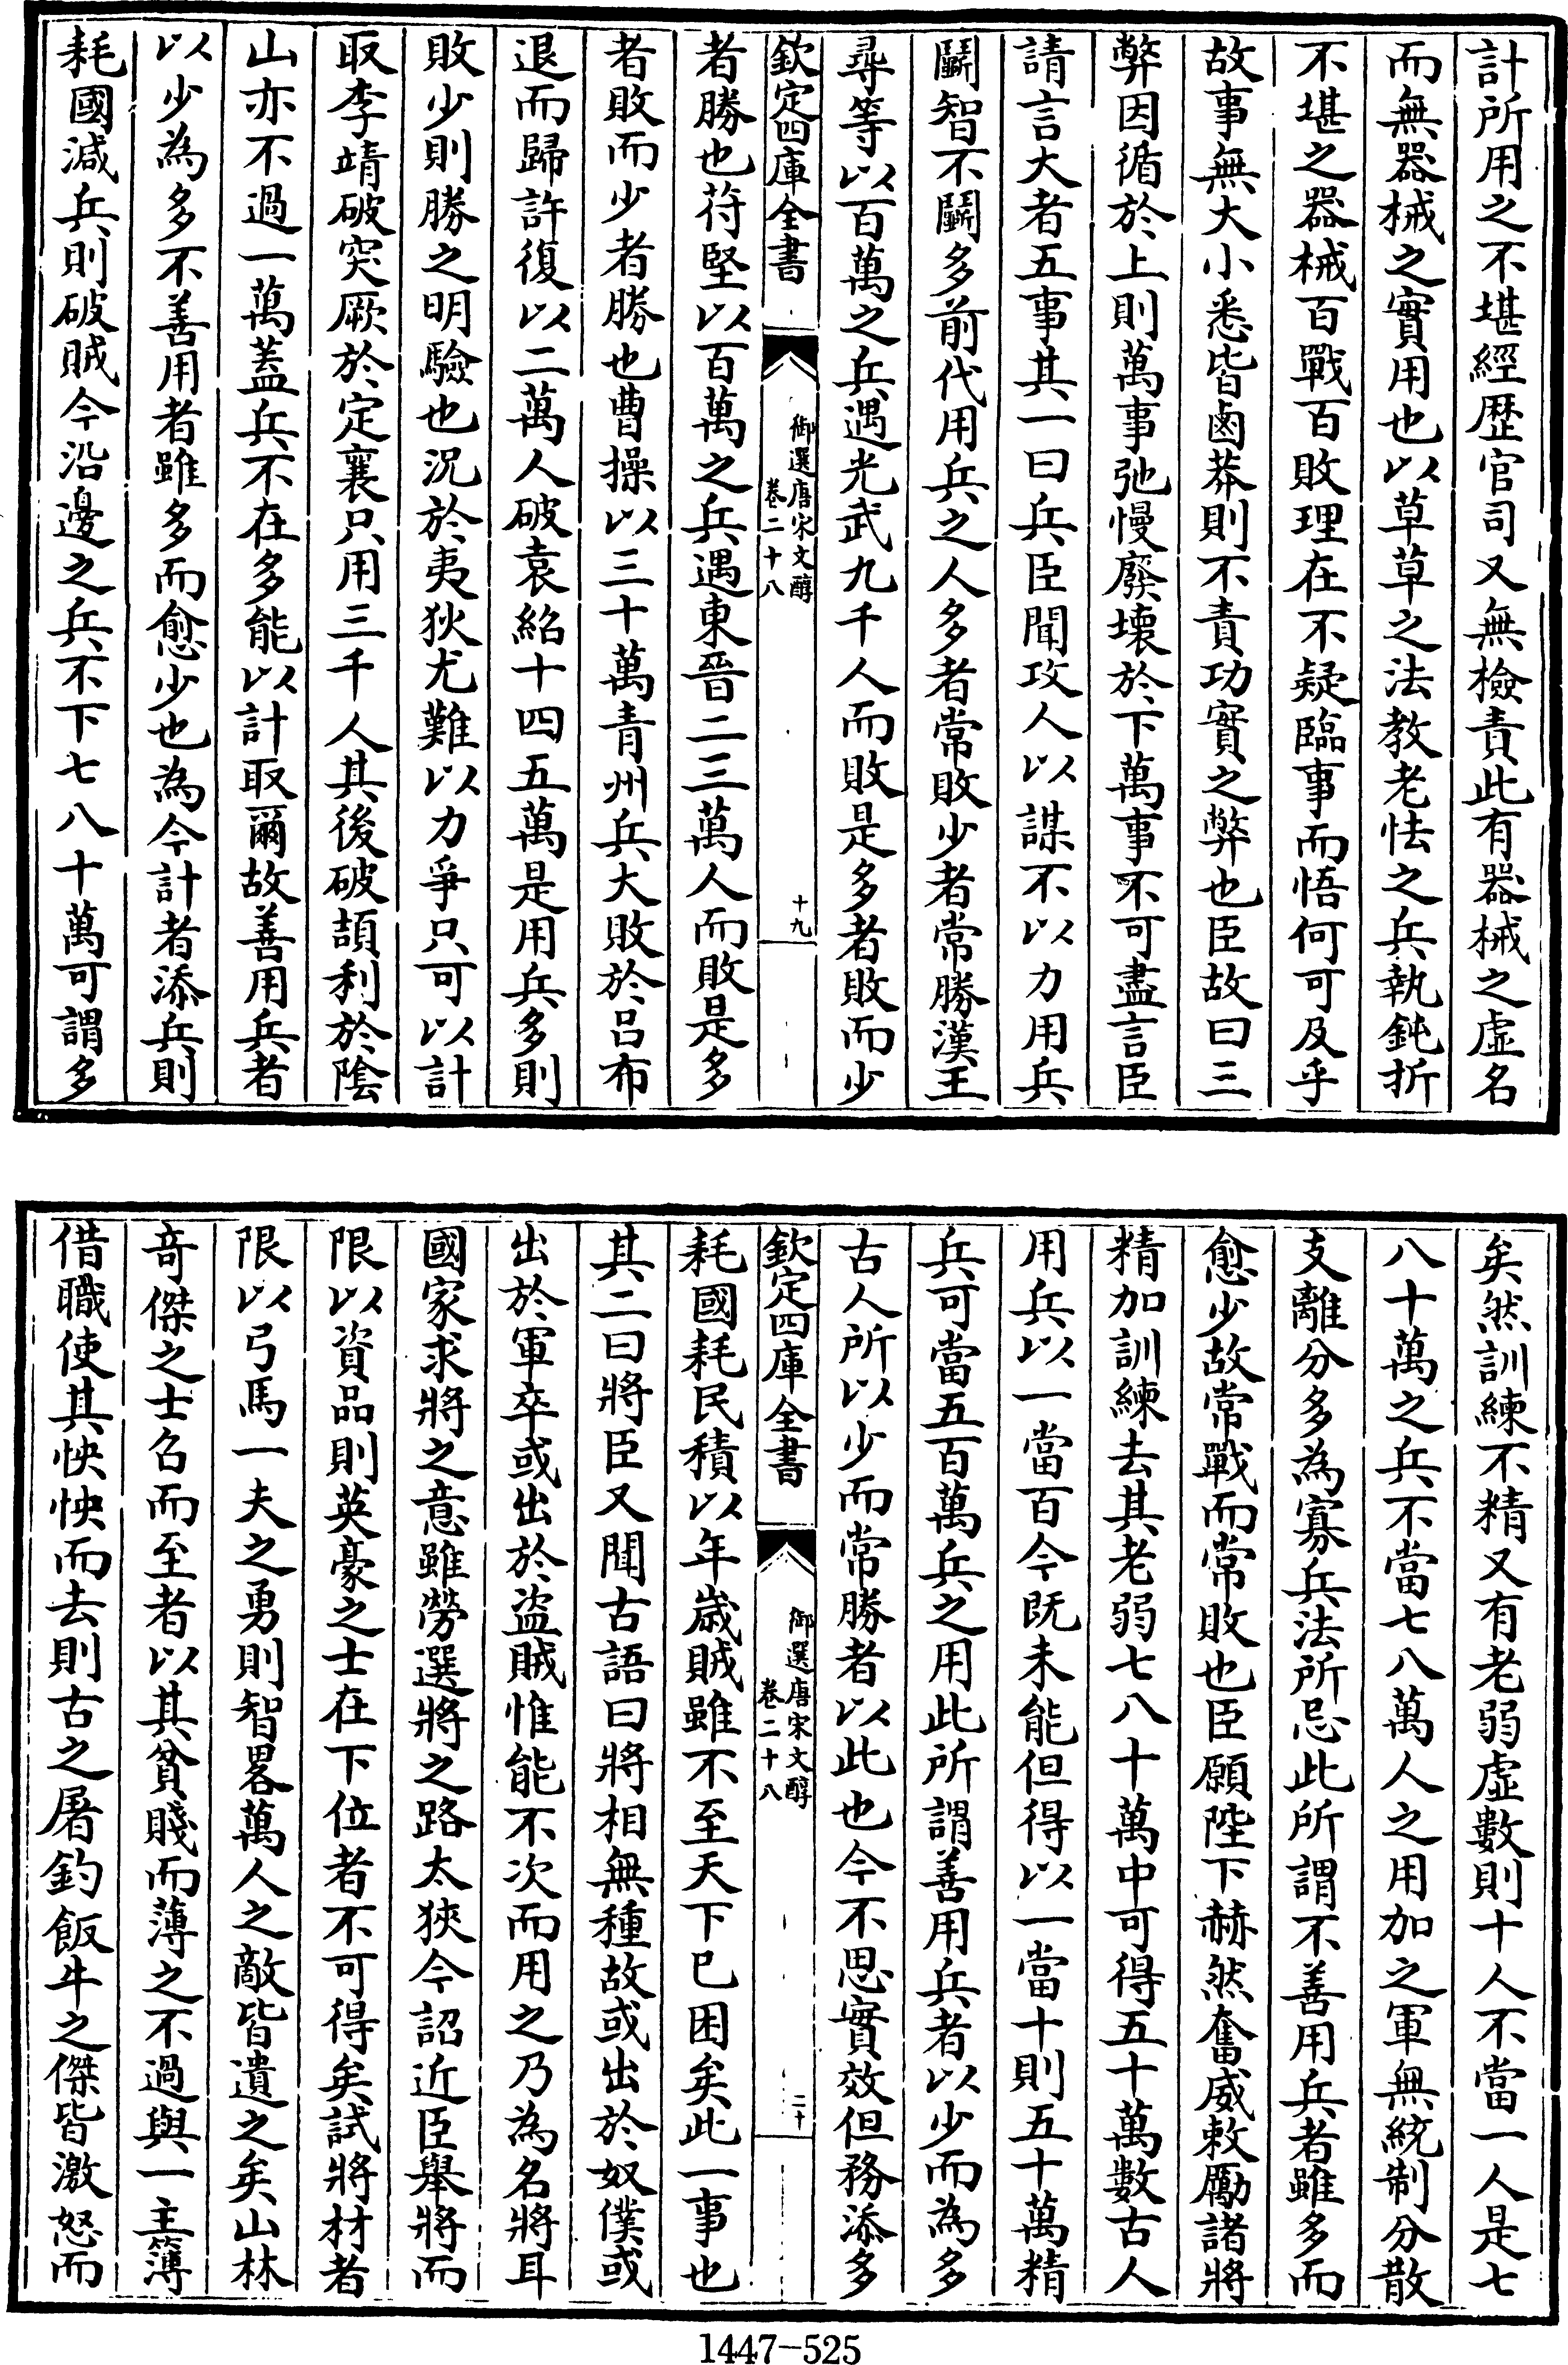 計所用之不堪經歴官司又無檢責此有器械之虚名
而無器械之實用也以草草之法教老怯之兵執鈍折
不堪之器械百戰百敗理在不疑臨事而悟何可及乎
故事無大小悉皆鹵莽則不責功實之弊也臣故曰三
弊因循於上則萬事弛慢廢壊於下萬事不可盡言臣
請言大者五事其一曰兵臣聞攻人以謀不以力用兵
鬭智不鬭多前代用兵之人多者常敗少者常勝漢王
尋等以百萬之兵遇光武九千人而敗是多者敗而少
欽定四庫全書
御選唐宋文醇
卷二十八
十九
者勝也苻堅以百萬之兵遇東晉二三萬人而敗是多
者敗而少者勝也曹操以三十萬青州兵大敗於吕布
退而歸許復以二萬人破袁紹十四五萬是用兵多則
敗少則勝之明驗也況於夷狄尤難以力爭只可以計
取李靖破突厥於定襄只用三千人其後破頡利於隂
山亦不過一萬蓋兵不在多能以計取爾故善用兵者
以少為多不善用者雖多而愈少也為今計者添兵則
耗國減兵則破賊今沿邊之兵不下七八十萬可謂多
矣然訓練不精又有老弱虚數則十人不當一人是七
八十萬之兵不當七八萬人之用加之軍無統制分散
支離分多為寡兵法所忌此所謂不善用兵者雖多而
愈少故常戰而常敗也臣願陛下赫然奮威敕勵諸將
精加訓練去其老弱七八十萬中可得五十萬數古人
用兵以一當百今既未能但得以一當十則五十萬精
兵可當五百萬兵之用此所謂善用兵者以少而為多
古人所以少而常勝者以此也今不思實效但務添多
欽定四庫全書
御選唐宋文醇
卷二十八
二十
耗國耗民積以年歳賊雖不至天下已困矣此一事也
其二曰將臣又聞古語曰將相無種故或出於奴僕或
出於軍卒或出於盜賊惟能不次而用之乃為名將耳
國家求將之意雖勞選將之路太狹今詔近臣舉將而
限以資品則英豪之士在下位者不可得矣試將材者
限以弓馬一夫之勇則智畧萬人之敵皆遺之矣山林
奇傑之士召而至者以其貧賤而薄之不過與一主簿
借職使其怏怏而去則古之屠釣飯牛之傑皆激怒而
1447-525